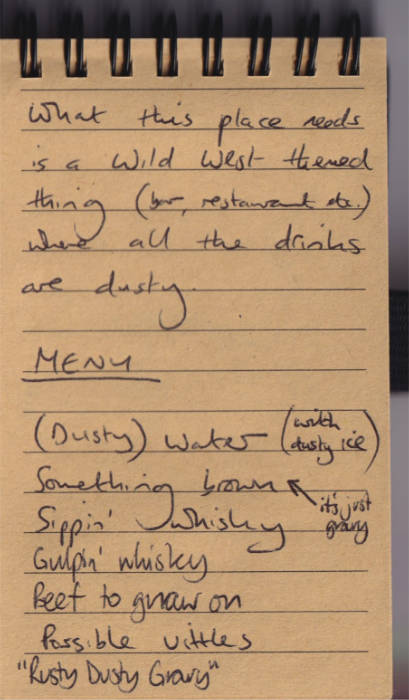 What this place needs
is a Wild West themed
thing (bar, restaurant etc.)
where all the drinks
are dusty.
MENU
(Dusty) Water (with dusty ice)
Something brown ↖ it's just gravy
Sippin' whisky
Gulpin' whisky
Beef to gnaw on
Possible vittles
"Rusty Dusty Gravy"